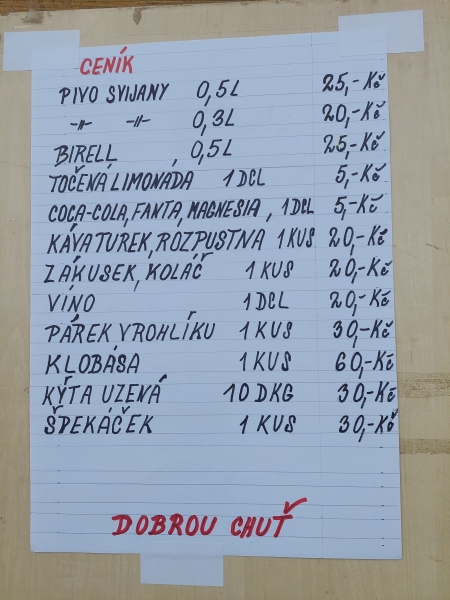 CENÍK
PIVO SVIJANY 0,5L 25,-Kč
-"- -"- 0,3L 20,-Kč
BIRELL, 0,5L 25,-Kč
TOČENÁ LIMONADA 1DCL 5,-Kč
COCA-COLA, FANTA, MAGNESIA, 1DCL 5,-Kč
KÁVA TUREK, ROZPUSTNA 1KUS 20,-Kč
ZÁKUSEK, KOLÁČ 1KUS 20,-Kč
VÍNO 1DCL 20,-Kč
PÁREK V ROHLÍKU 1KUS 30,-Kč
KLOBÁSA 1KUS 60,-Kč
KÝTA UZENÁ 10DKG 30,-Kč
ŠPEKÁČEK 1KUS 30,-Kč
DOBROU CHUŤ